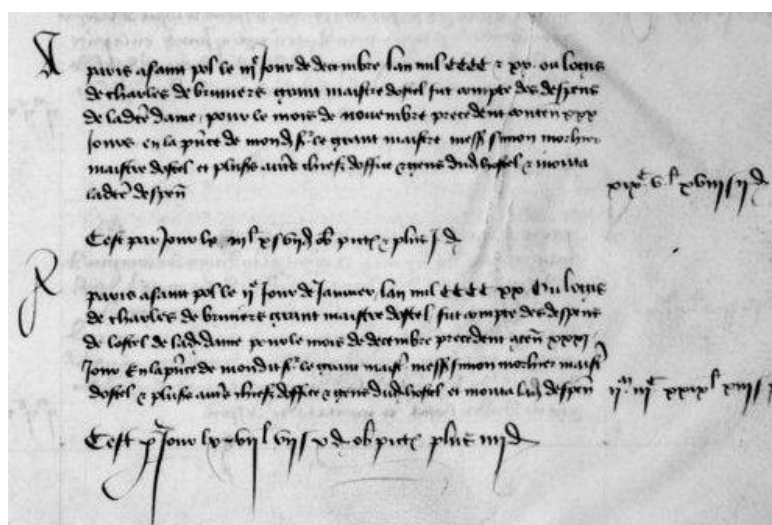 A paris a saint pol le iiije Jour de decembre lan mil CCCC et xx. ou logis
de charles de grant maistre dostel fut compte des despens
de ladte dame pour le mois de novembre precedent conten xxx
Jours en la pnce de mond sr le grant maistre messe simon morhier
maistre dostel et plusrs autres chiefs doffice et gens dud hostel et monta
ladte despen
xixc v l xviii s ii d
Cest par Jour xs vii d ob picte et plus d
A paris a saint pol le iie Jour de Janvier lan mil CCCC xx Ou logis
de charles de grant maistre dostel fut compte des despens
de lostel de lad dame pour le mois de decembre precedent conten xxxi
Jour En la pnce de mondit sr le grant maistre messe simon morhier maistre
dostel et plusrs autres chiefs doffice et gens dud hostel et monta lad despen iim iiic xxix l xiii s
Cest par Jour lxxvii l vii s v d ob picte plus iiii d